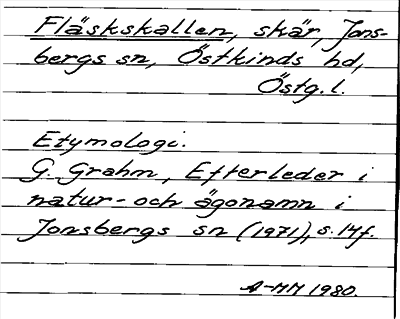 Fläskskallen, skär, Jons-
bergs sn, Östkinds hd,
Östg. l.
Etymologi.
G. Grahm, Efterleder i
natur- och ägonamn i
Jonsbergs sn (1971), s. 14f.
A-MM 1980.